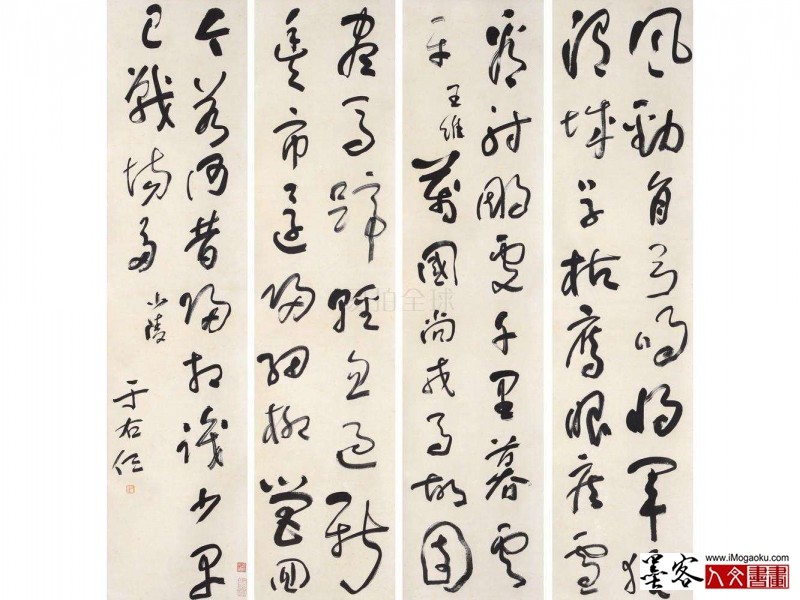 風勁角弓鳴將軍獵
渭城草枯鷹眼疾雪
看射鵰處千里暮雲
平 王維 萬國尚戎馬故園
盡馬蹄輕忽過新
豐市還歸細柳營回
今若何昔歸相識少早
已戰場多 少陵
于右任
拍全球
墨客
www.iMogaoku.com
人文書畫